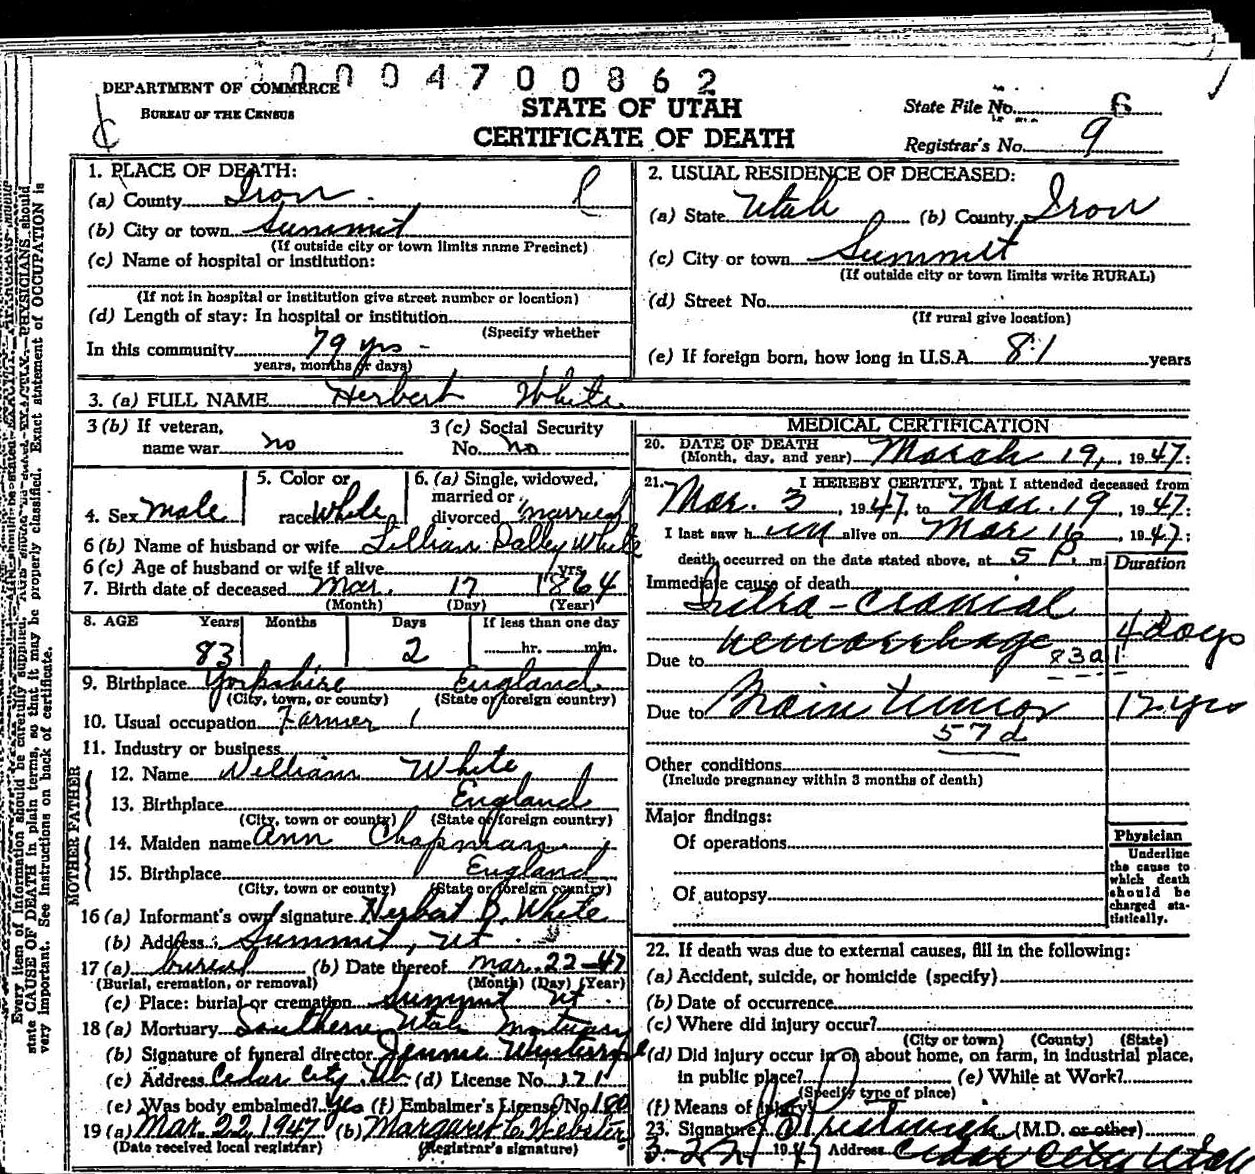 0004700862
DEPARTMENT OF COMMERCE
BUREAU OF THE CENSUS
STATE OF UTAH
CERTIFICATE OF DEATH
State File No. 6
Registrar's No. 9
1. PLACE OF DEATH:
(a) County Iron
(b) City or town Summit
(If outside city or town limits name Precinct)
(c) Name of hospital or institution:
(If not in hospital or institution give street number or location)
(d) Length of stay: In hospital or institution
(Specify whether
In this community 79 yrs -
years, months or days)
2. USUAL RESIDENCE OF DECEASED:
(a) State Utah (b) County Iron
(c) City or town Summit
(If outside city or town limits write RURAL)
(d) Street No.
(If rural give location)
(e) If foreign born, how long in U.S.A. 81 years
3. (a) FULL NAME Herbert White
3 (b) If veteran, name war no
3 (c) Social Security No. no
4. Sex Male
5. Color or race White
6. (a) Single, widowed, married or divorced married
6 (b) Name of husband or wife Lillian Dalley White
6 (c) Age of husband or wife if alive yrs.
7. Birth date of deceased Mar. 17 1864
(Month) (Day) (Year)
8. AGE Years Months Days If less than one day
83 2 hr. min.
9. Birthplace Yorkshire England
(City, town, or county) (State or foreign country)
10. Usual occupation Farmer
11. Industry or business
FATHER
12. Name William White
13. Birthplace England
(City, town or county) (State or foreign country)
MOTHER
14. Maiden name Ann Chapman
15. Birthplace England
(City, town or county) (State or foreign country)
16 (a) Informant's own signature Herbert D. White
(b) Address: Summit, Ut.
17 (a) burial (b) Date thereof Mar. 22-47
(Burial, cremation, or removal) (Month) (Day) (Year)
(c) Place: burial or cremation Summit Ut.
18 (a) Mortuary Southern Utah Mortuary
(b) Signature of funeral director Jennie
(c) Address Cedar City Ut (d) License No. 171
(e) Was body embalmed? Yes (f) Embalmer's License No. 180
19 (a) Mar. 22, 1947 (b) Margaret C. Webster
(Date received local registrar) (Registrar's signature)
MEDICAL CERTIFICATION
20. DATE OF DEATH
(Month, day, and year) March 19, 1947:
21. I HEREBY CERTIFY, That I attended deceased from
Mar. 3, 1947, to Mar. 19, 1947:
I last saw h im alive on Mar 16, 1947:
death occurred on the date stated above, at 5 P. m.
Duration
Immediate cause of death
Intra-cranial
hemorrhage 4 days
Due to 83a1
Due to Brain tumor 12 yrs
57d
Other conditions
(Include pregnancy within 3 months of death)
Major findings:
Of operations
Of autopsy
Physician
Underline
the cause to
which death
should be
charged sta-
tistically.
22. If death was due to external causes, fill in the following:
(a) Accident, suicide, or homicide (specify)
(b) Date of occurrence
(c) Where did injury occur?
(City or town) (County) (State)
(d) Did injury occur in or about home, on farm, in industrial place,
in public place? (e) While at Work?
(Specify type of place)
(f) Means of injury
23. Signature Prestwich (M.D. or other)
3-22, 1947 Address Cedar City Utah
Every item of information should be carefully supplied. AGE should be stated EXACTLY. PHYSICIANS should
state CAUSE OF DEATH in plain terms, so that it may be properly classified. Exact statement of OCCUPATION is
very important. See instructions on back of certificate.